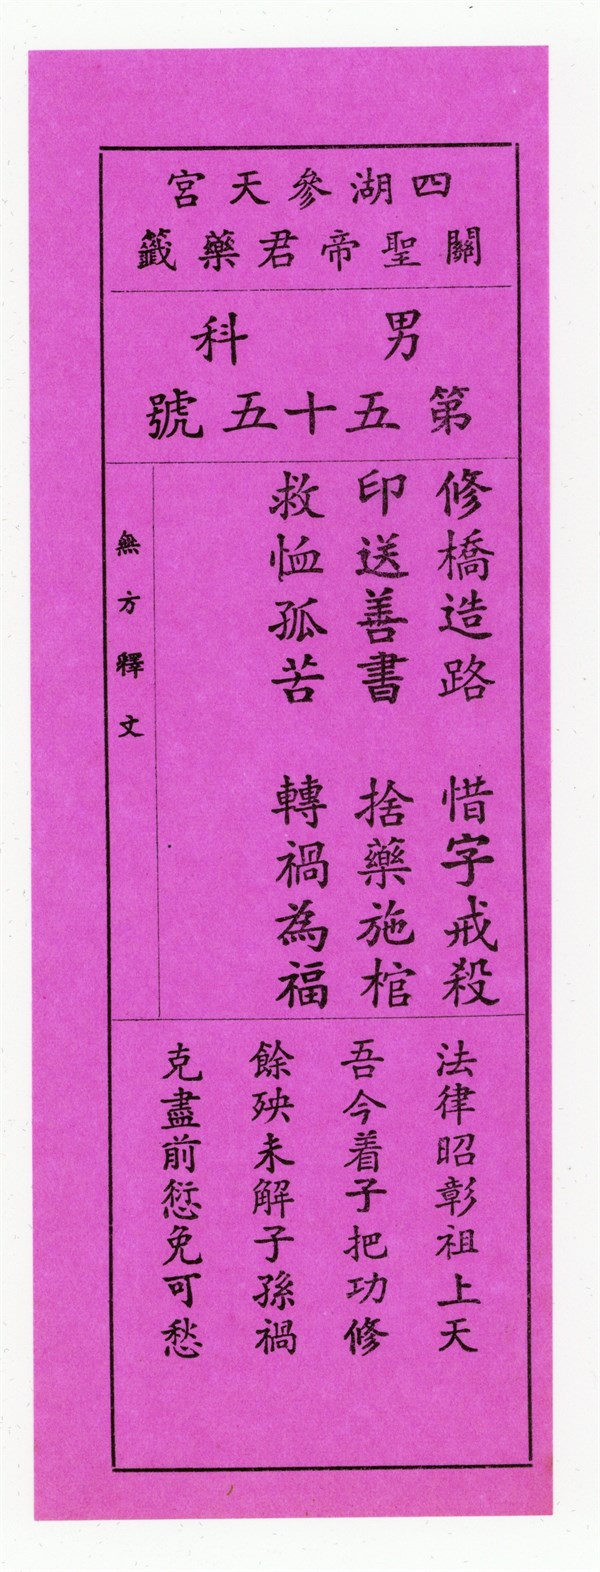 四湖參天宮
關聖帝君藥籤
男科
第五十五號
修橋造路 惜字戒殺
印送善書 捨藥施棺
救恤孤苦 轉禍為福
無方釋文
法律昭彰祖上天
吾今着子把功修
餘殃未解子孫禍
克盡前愆免可愁